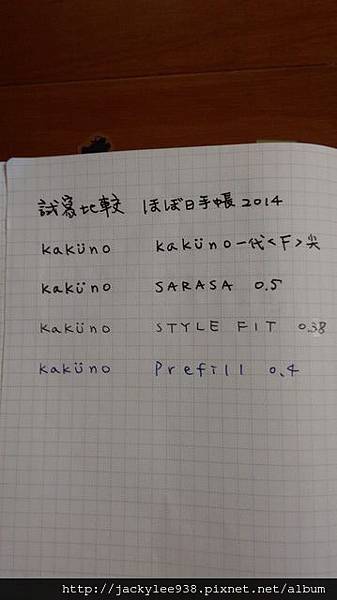 試寫比較 ほぼ日手帳2014
kaküno kaküno一代<F>尖
kaküno SARASA 0.5
kaküno STYLE FIT 0.38
kaküno Prefill 0.4
http://jackylee938.pixnet.net/album